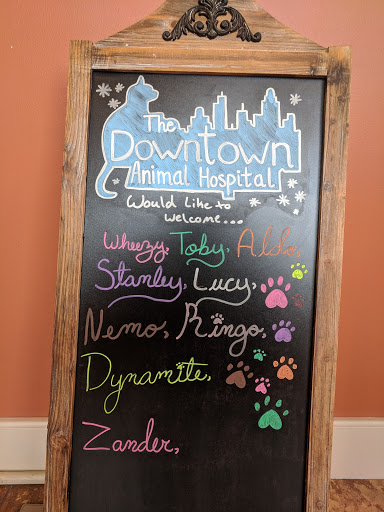 The
Downtown
Animal Hospital
Would Like to
welcome...
Wheezy, Toby, Aldo,
Stanley, Lucy,
Nemo, Ringo,
Dynamite,
Zander,